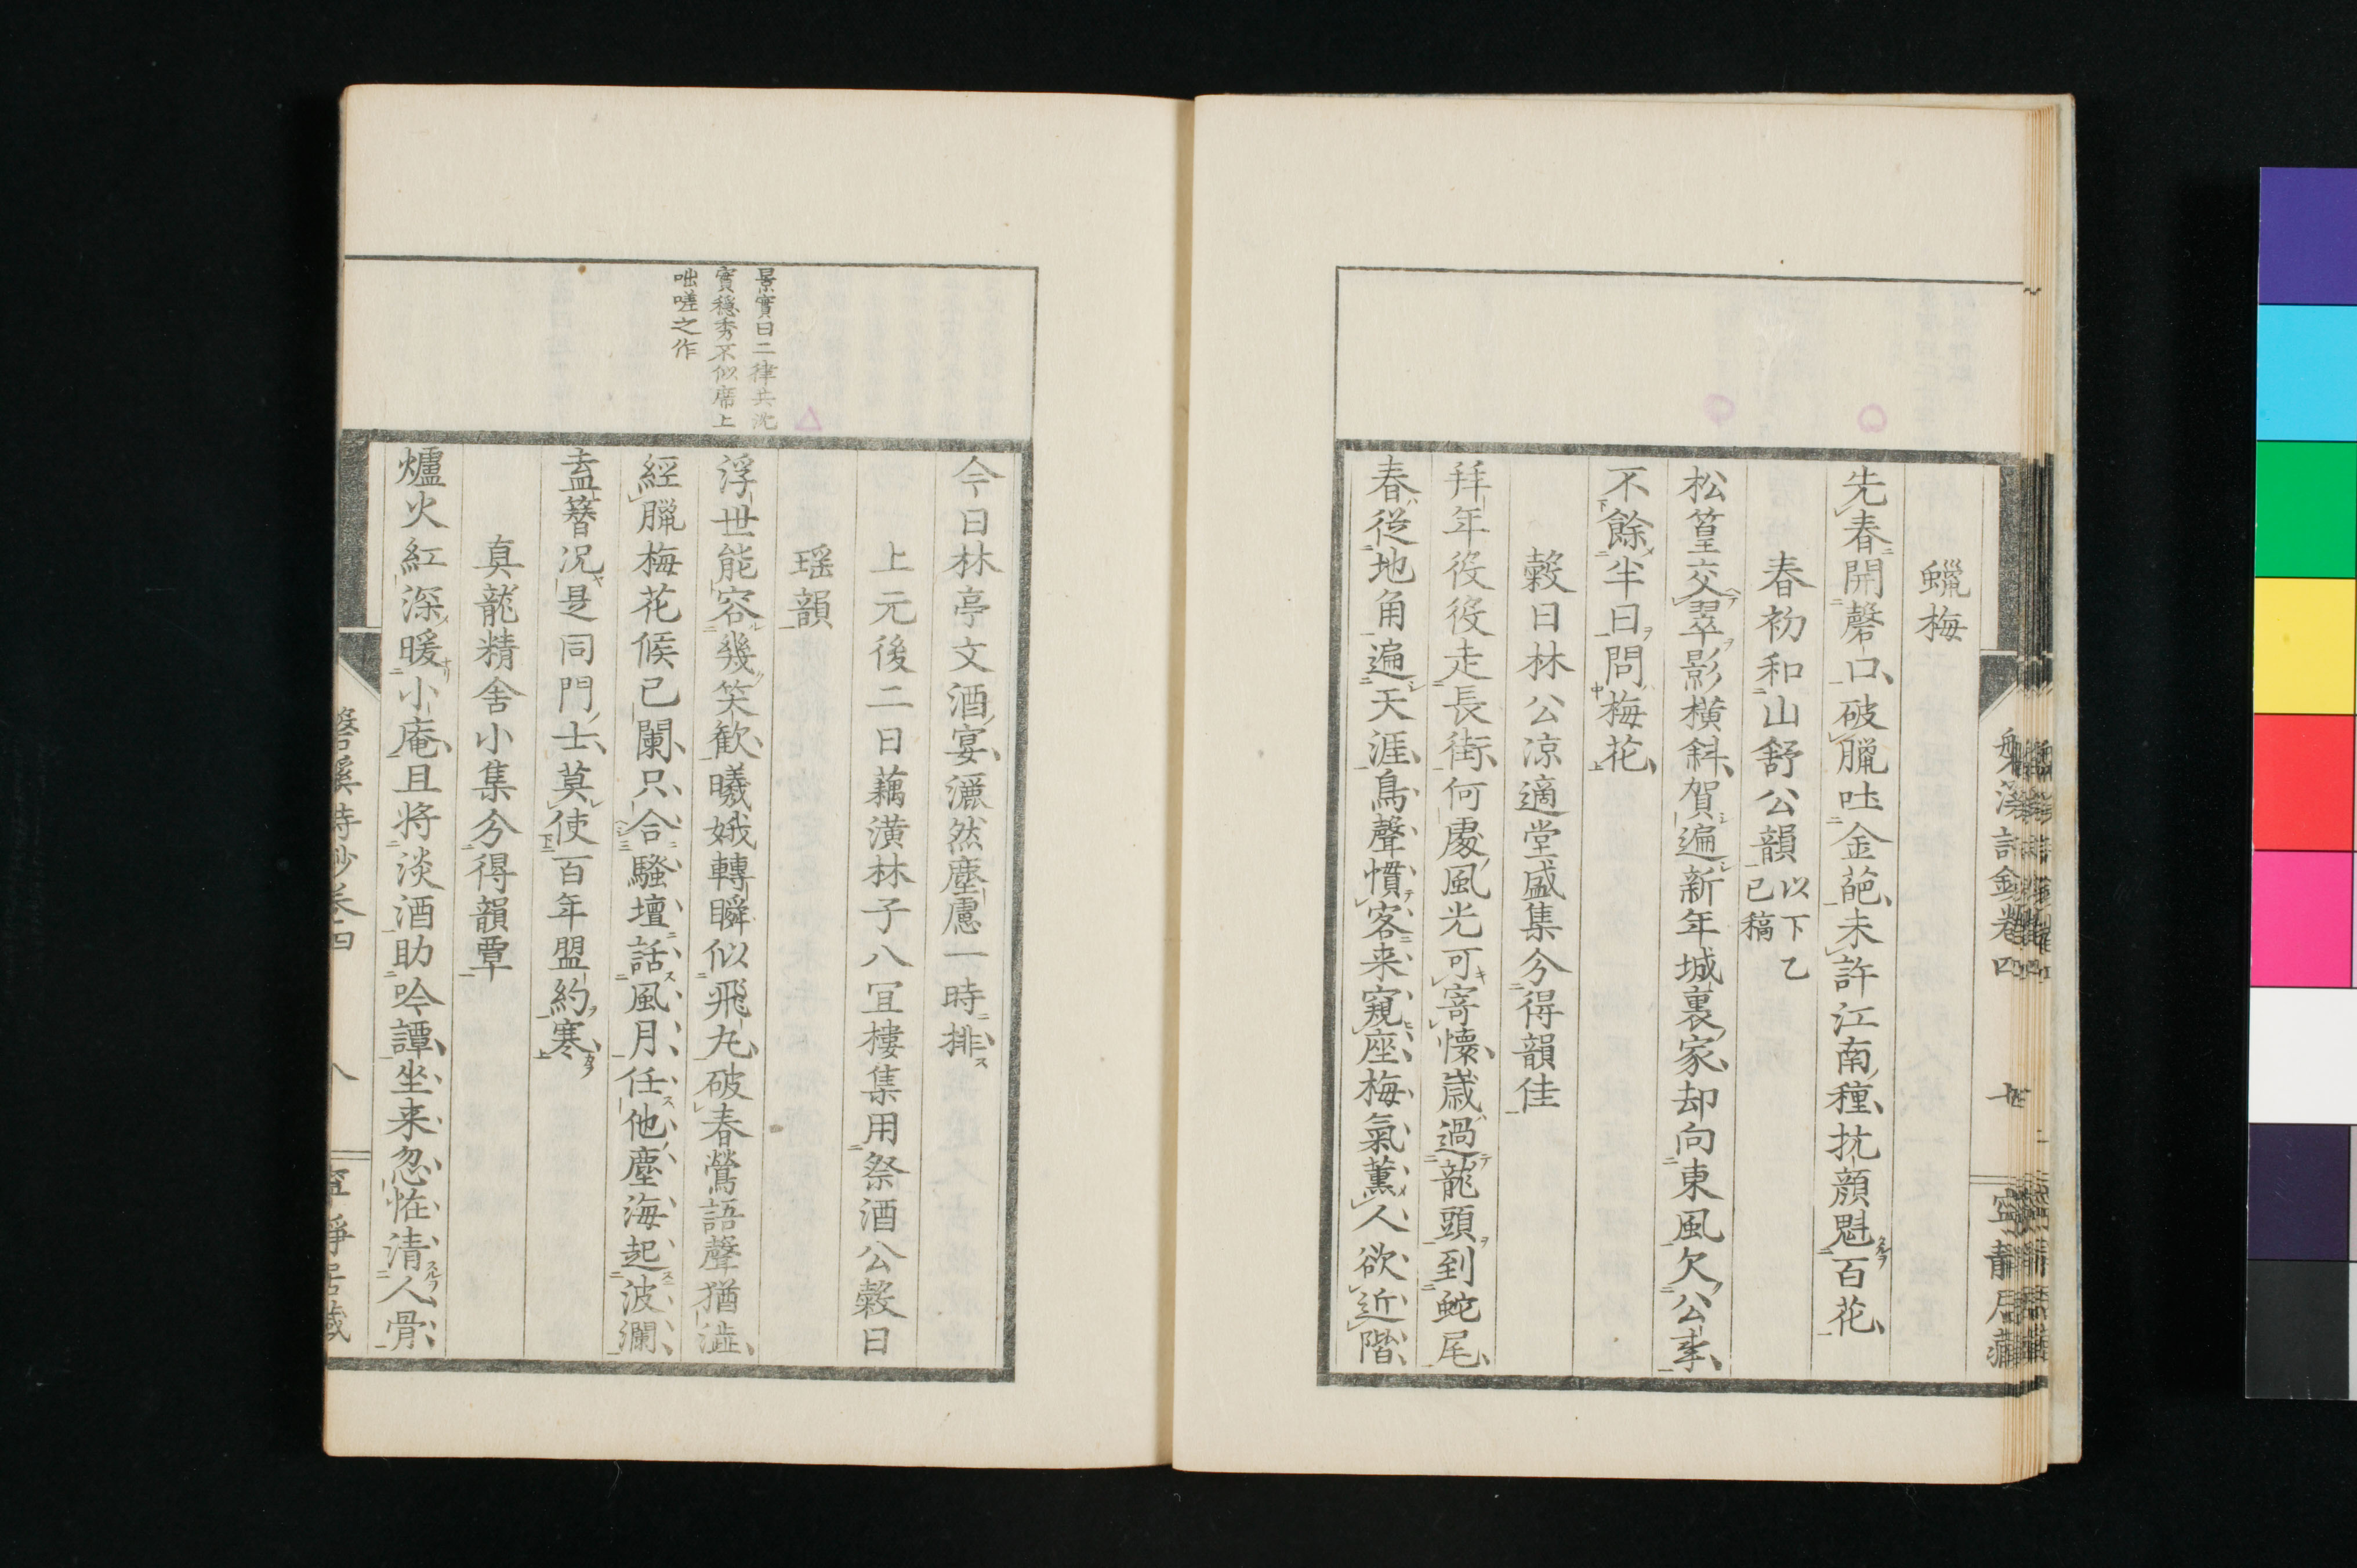 蠟梅
先春開磬口破臘吐金葩未許江南種抗顔魁百花
春初和山舒公韻以下乙
已稿
松篁交翠影橫斜賀遍新年城裏家却向東風欠公事
不餘半日問梅花
穀日林公涼適堂盛集分得韻佳
拜年役役走長街何處風光可寄懷歲過龍頭到蛇尾
春從地角遍天涯鳥聲慣客来窺座梅氣薫人欲近階
景實曰二律共沈
實穏秀不似席上
咄嗟之作
今日林亭文酒宴灑然塵慮一時排
上元後二日藕潢林子八冝樓集用祭酒公穀日
瑶韻
浮世能容幾笑歡曦娥轉瞬似飛丸破春鶯語聲猶澁
經臘梅花候已闌只合騷壇話風月任他塵海起波瀾
盍簪况是同門士莫使百年盟約寒
真龍精舍小集分得韻覃
爐火紅深暖小庵且将淡酒助吟譚坐来忽恠清人骨
磐溪詩鈔卷四
八
寧靜居藏